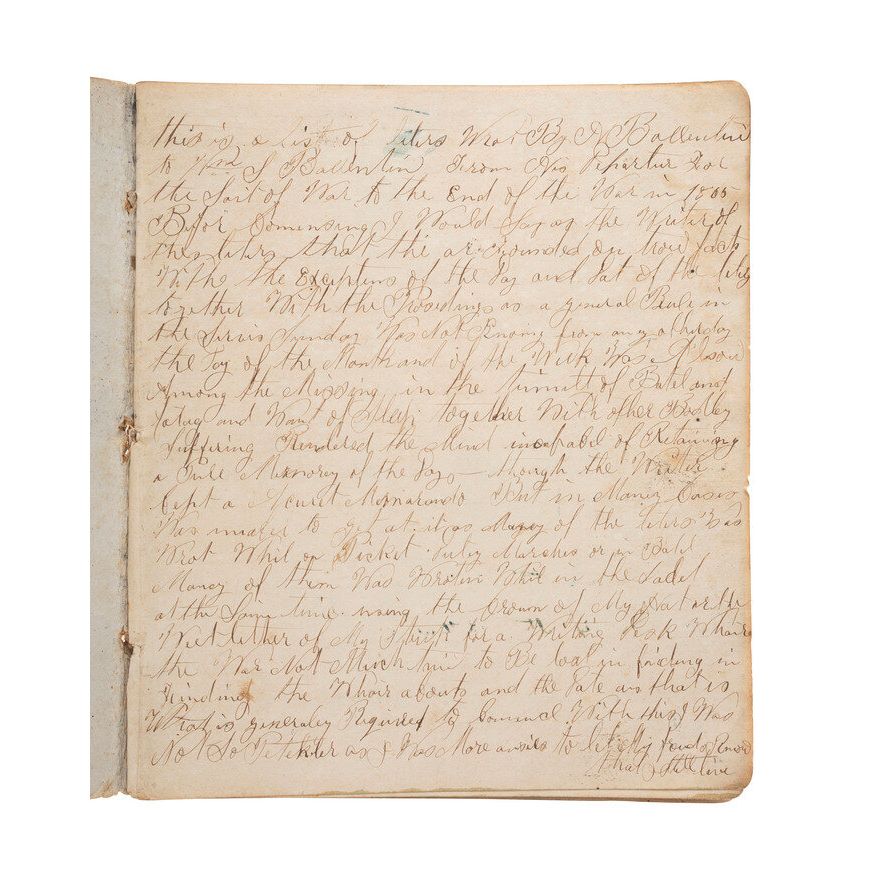 this is a list of leters Wrot By A Ballentine
to Wm S Ballentin From His Departur For
the Seit of War to the End of the War in 1865
Befor Comensing I Would Say as the Writer of
thes leters that the ar Grounded on trew facts
With the Exceptions of the Day and Dat of the leters
together With the Proseedings as a general Rule in
the Servis Sunday Was Not Knowing from any other day
the Day of the Month and of the Week Was Also
Among the Missing in the turmilt of Batel and
fatug and Want of Sleep together With other Bodley
Suffiring Rendered the Mind incapabel of Retaining
a True Memorey of the Days though the Writer
Kept a Memarando But in Maney Cases
Was to get at it as Maney of the leters Was
Wrot Whil on Picket Duty Marches or in Batel
Maney of them Was Wroten Whil in the Sadel
at the Same time using the Crown of My Hat or the
lether of My for a Writing Desk Whair
the Was Not Much time to Be lost in finding in
Finding the Whair abouts and the Date as that is
What is generaley Required to Comence With this I Was
Not So Petickler as I Was More to let My frends Know
that I Still live